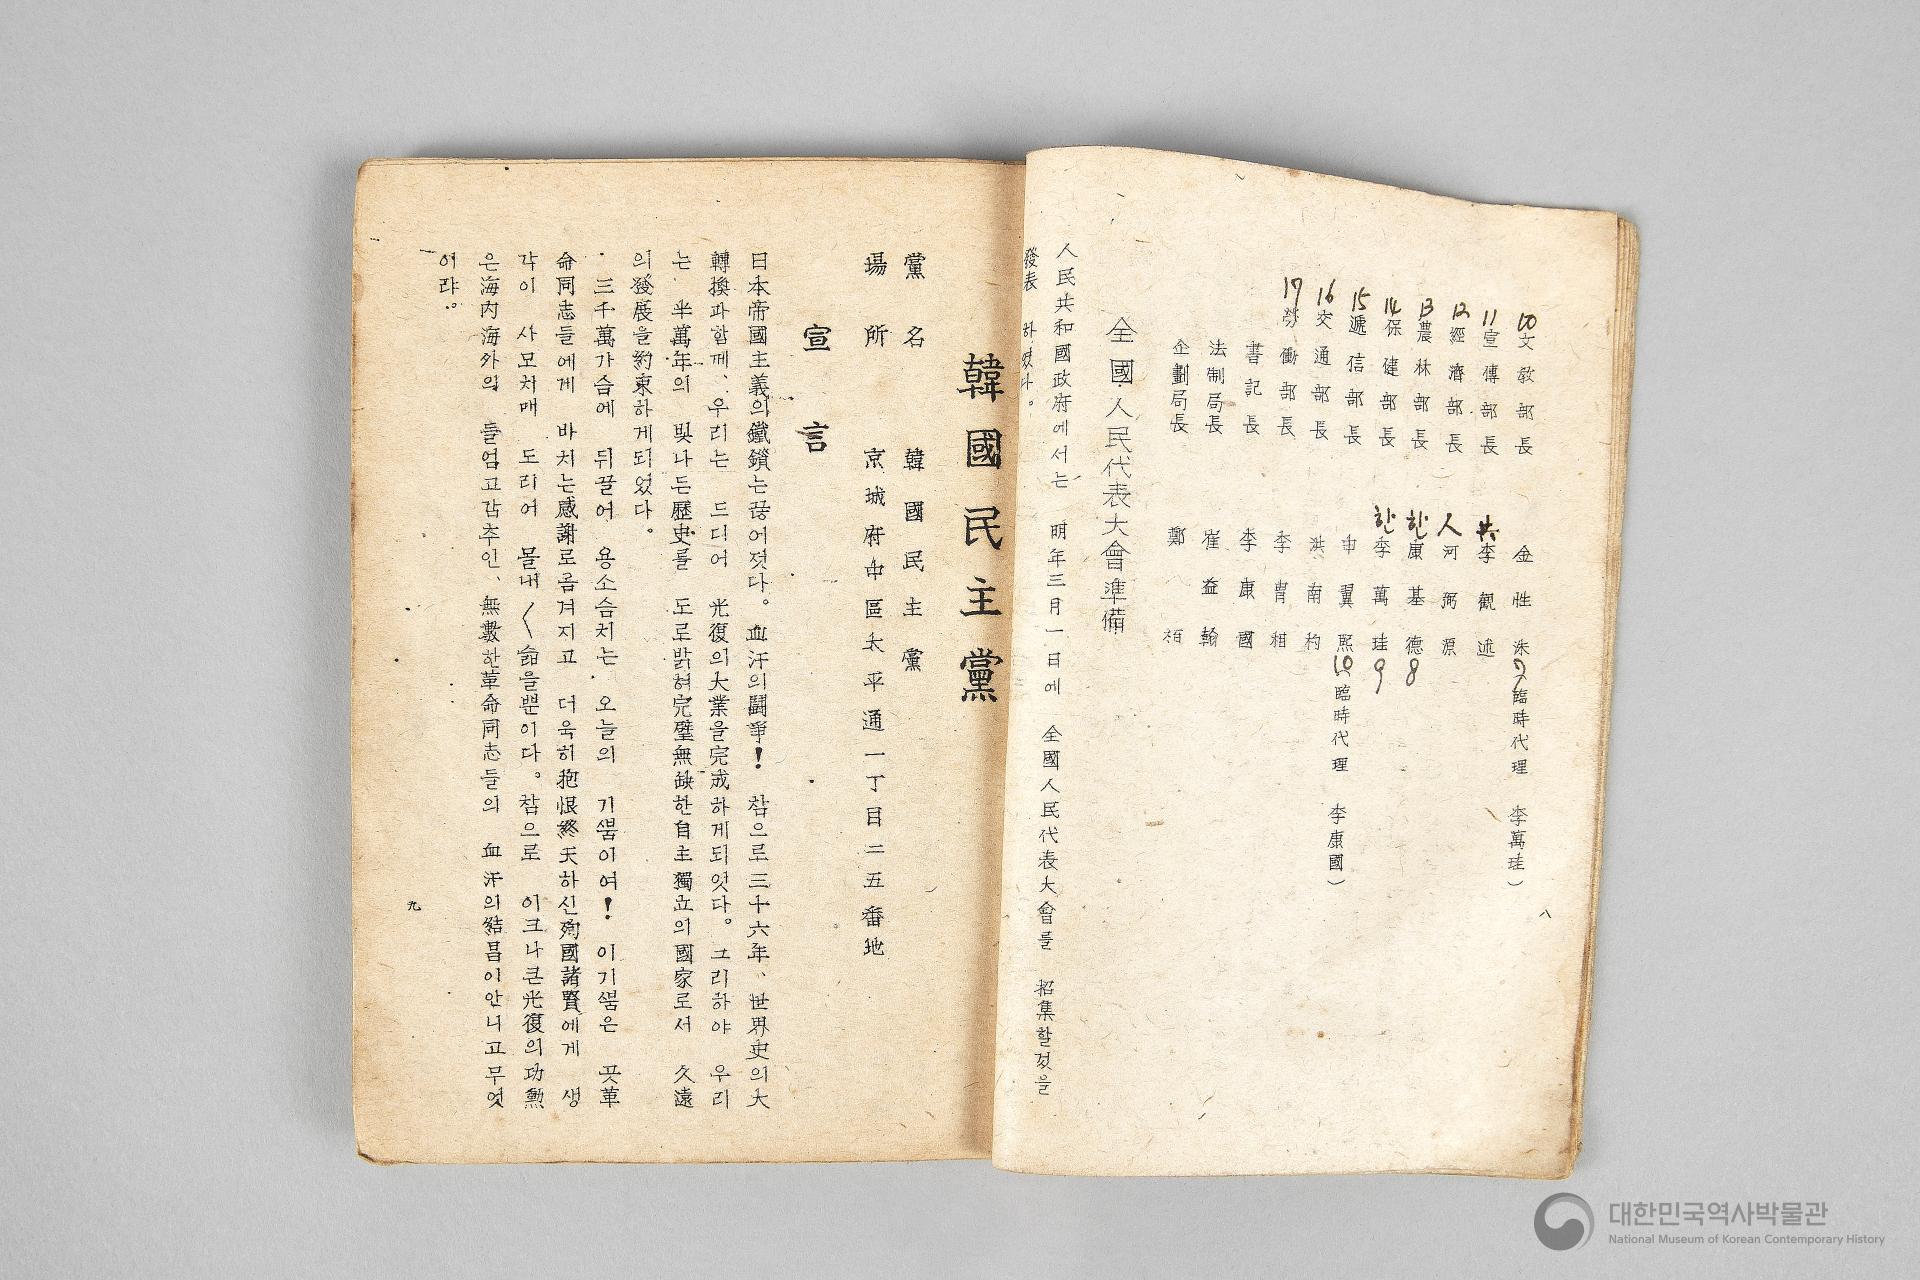 10 文敎部長 金性洙 7 (臨時代理 李萬珪)
11 宣傳部長 共 李觀述
12 經濟部長 人 河弼源
13 農林部長 한 康基德 8
14 保健部長 한 李萬珪 9
15 遞信部長 申翼熙 10 (臨時代理 李康國)
16 交通部長 洪南杓
17 勞働部長 李胄相
書記長 李康國
法制局長 崔益翰
企劃局長 鄭栢
全國人民代表大會準備
人民共和國政府에서는 明年三月一日에 全國人民代表大會를 招集할것을
發表 하였다。
八
韓國民主黨
黨名 韓國民主黨
場所 京城府中區太平通一丁目二五番地
宣言
日本帝國主義의鐵鎖는끊어젓다。血汗의鬪爭! 참으로三十六年、世界史의大
轉換과함께、우리는 드디어 光復의大業을完成하게되엇다。그리하야 우리
는 半萬年의 빛나든歷史를 도로밝혀完璧無缺한自主獨立의國家로서 久遠
의發展을約束하게되었다。
三千萬가슴에 뒤끌어 용소슴치는 오늘의 기쁨이여! 이기쁨은 곳革
命同志들에게 바치는感謝로옴겨지고 더욱히抱恨終天하신殉國諸賢에게 생
각이 사모처매 도리어 몰내〱命을뿐이다。참으로 이크나큰光復의功勳
은海內海外의 들엄고감추인、無數한革命同志들의 血汗의結晶이안니고무엇
이랴。
九
대한민국역사박물관
National Museum of Korean Contemporary History